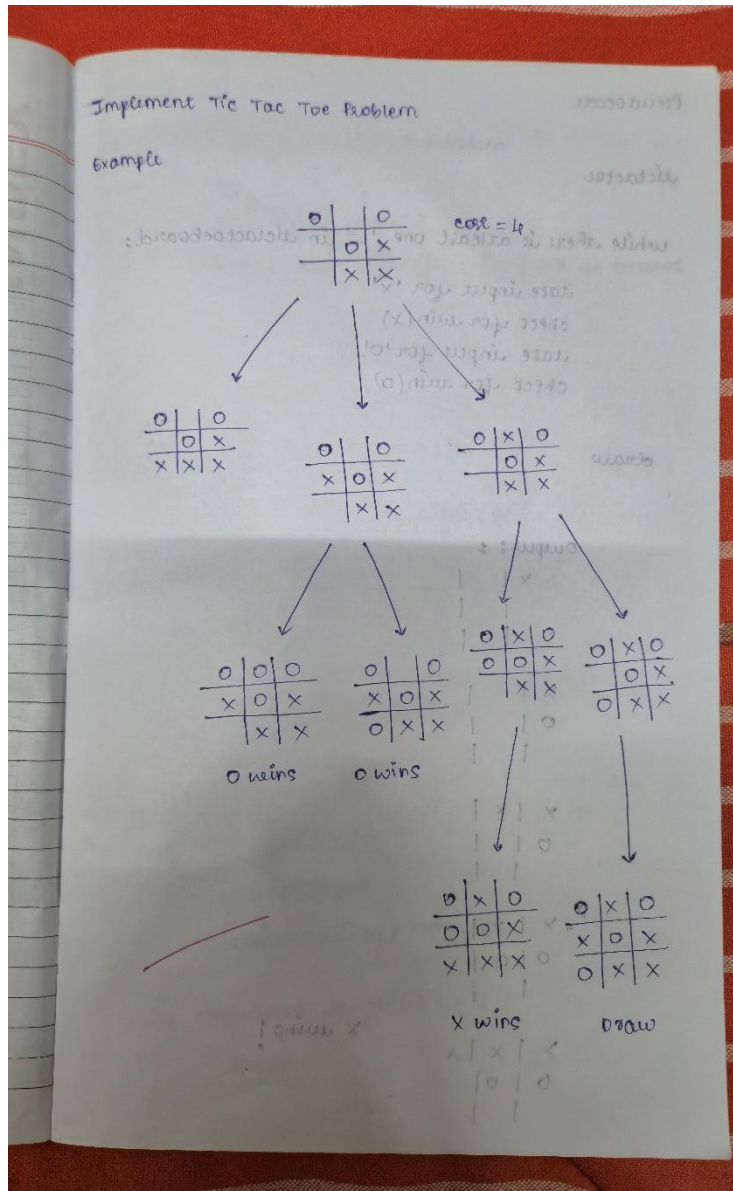 Implement Tic Tac Toe Problem
Example
O | | O
cost = 4
| O | X
| X | X
O | | O
| O | X
X | X | X
O | | O
X | O | X
| X | X
O | X | O
| O | X
| X | X
O | O | O
X | O | X
| X | X
O wins
O | | O
X | O | X
O | X | X
O wins
O | X | O
O | O | X
| X | X
O | X | O
| O | X
O | X | X
O | X | O
O | O | X
X | X | X
X wins
O | X | O
X | O | X
O | X | X
Draw